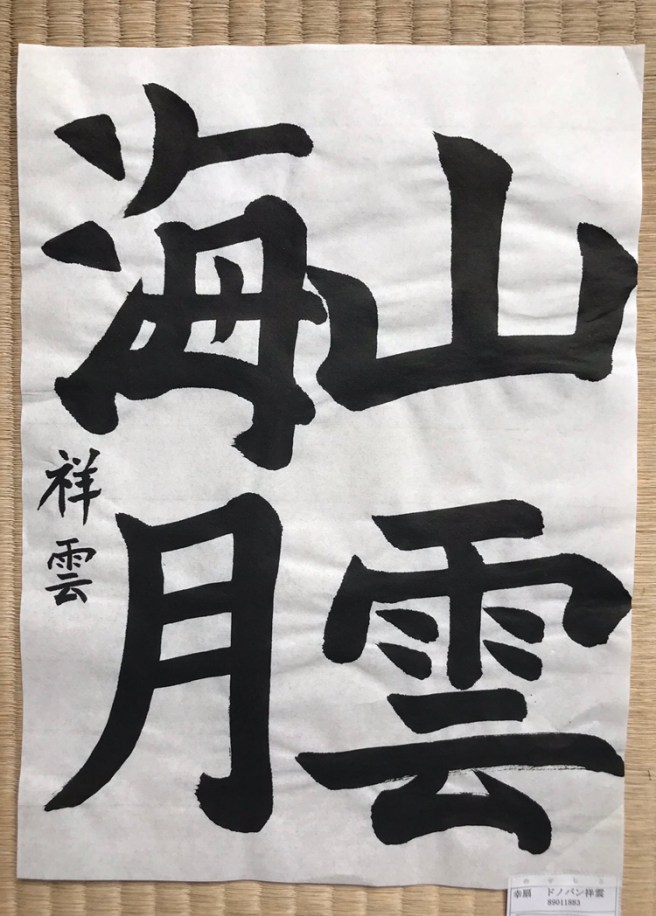 山雲
海月
祥雲
ドノバン祥雲
89011883